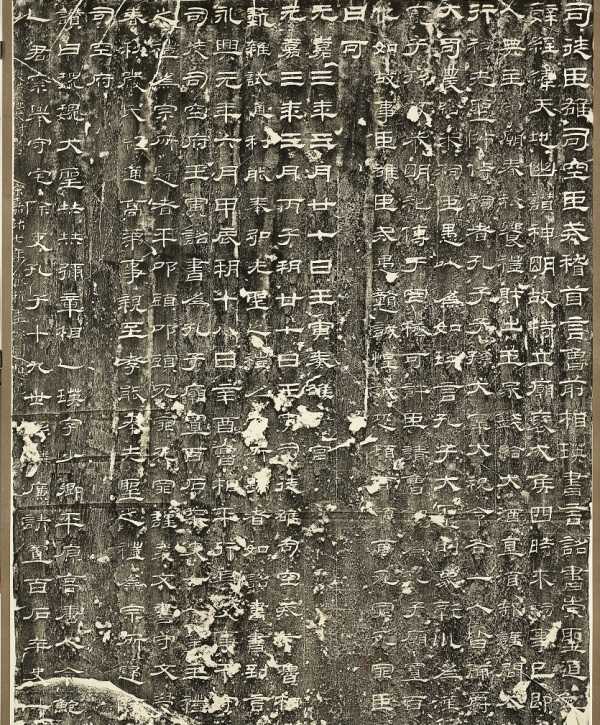 司徒臣雄司空臣戒稽首言魯前相瑛書言詔書崇聖道勉
辭經緯天地幽讚神明故特立廟褒成侯四時來祠事已即
人典主守廟春秋饗禮財出王家錢給犬酒直須報謹問大
行祠先聖師侍祠者孔子子孫大宰大祝令各一人皆備爵
大司農給米祠臣愚以為如瑛言孔子大聖則象乾坤為漢
寵子孫敬恭明祀傳于罔極可許臣請魯相為孔子廟置百
他如故事臣雄臣戒愚戇誠惶誠恐頓首頓首死罪死罪臣
曰可
元嘉三年三月廿七日壬寅奏雒陽宮
元嘉三年三月丙子朔廿七日壬寅司徒雄司空戒下魯相
藝雜試通利能奉弘先聖之禮為宗所歸者如詔書書到言
永興元年六月甲辰朔十八日辛酉魯相平行長史事卞守
司徒司空府壬寅詔書為孔子廟置百石卒史一人掌主禮
之禮為宗所歸者平叩頭叩頭死罪死罪謹案文書守文學
春秋嚴氏經通高第事親至孝能奉先聖之禮為宗所歸除
司空府
讚曰巍巍大聖赫赫彌章相乙瑛字少卿平原高唐人令鮑
乙君察舉守宅除吏孔子十九世孫麟廉請置百石卒史一